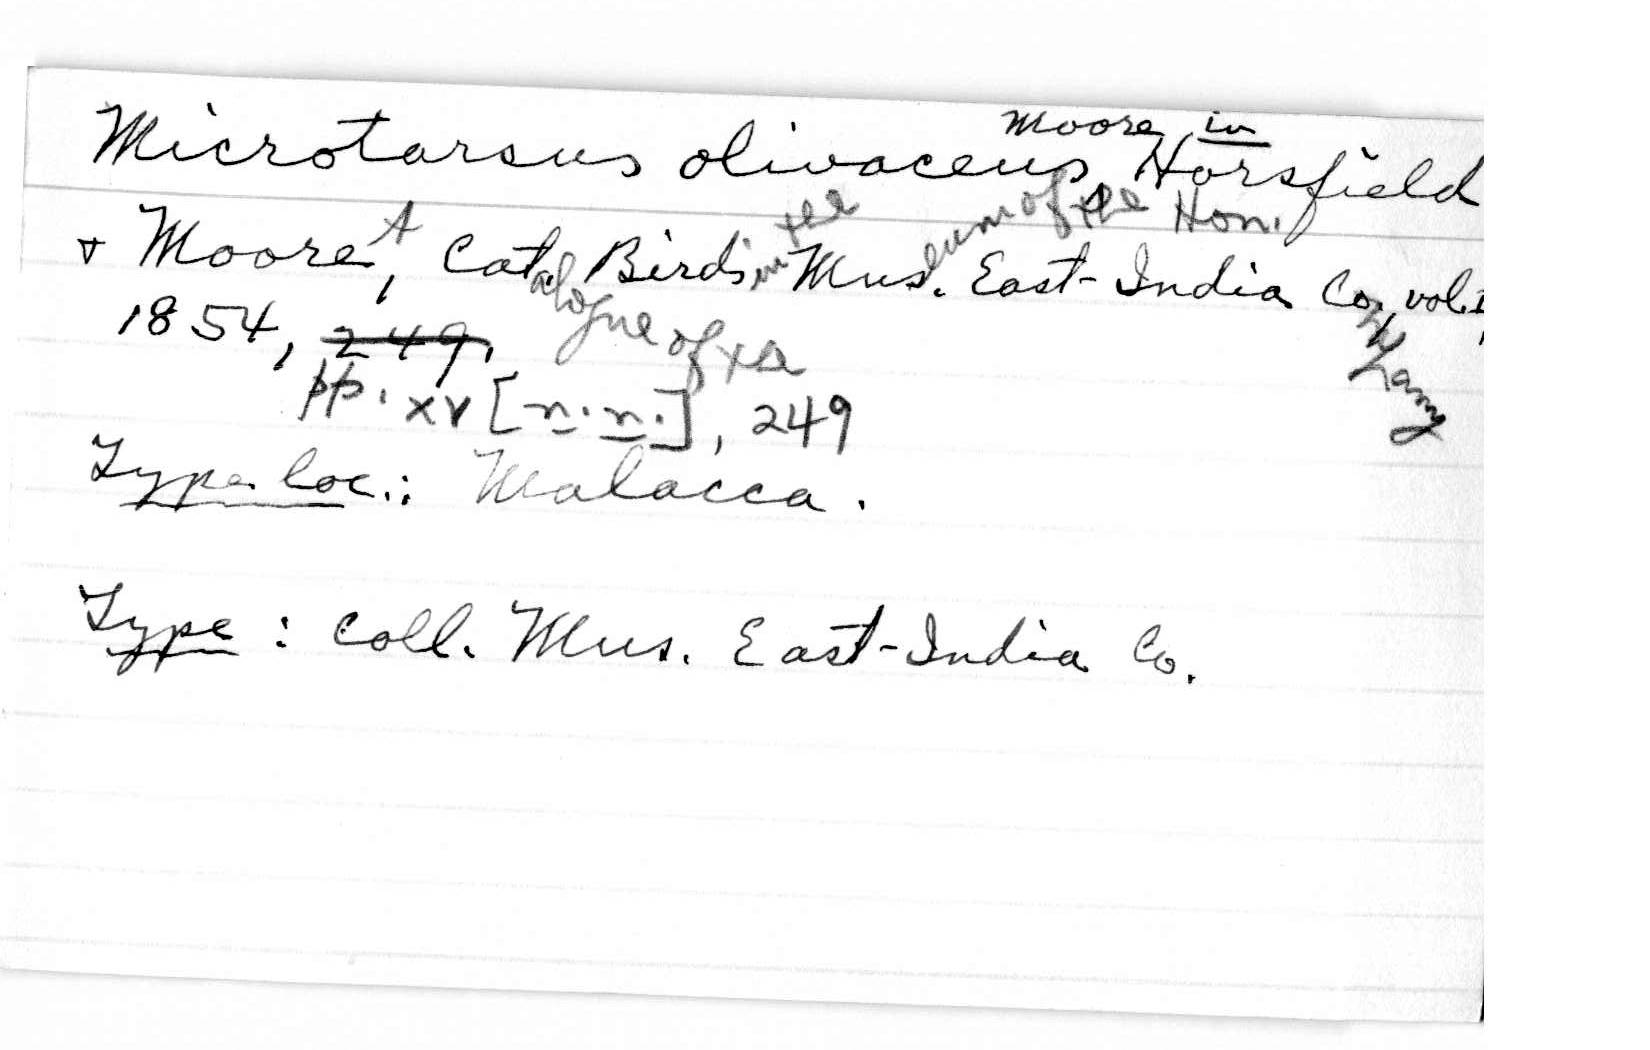 Moore in
Microtarsus olivaceus, Horsfield
A the eum of the Hon.
& Moore, Cat. Birds in Mus. East-India Co., vol. I,
alogue of the mpany
1854, 249.
pp. xv [n.n.], 249
Type loc.: Malacca.
Type: coll. Mus. East-India Co.